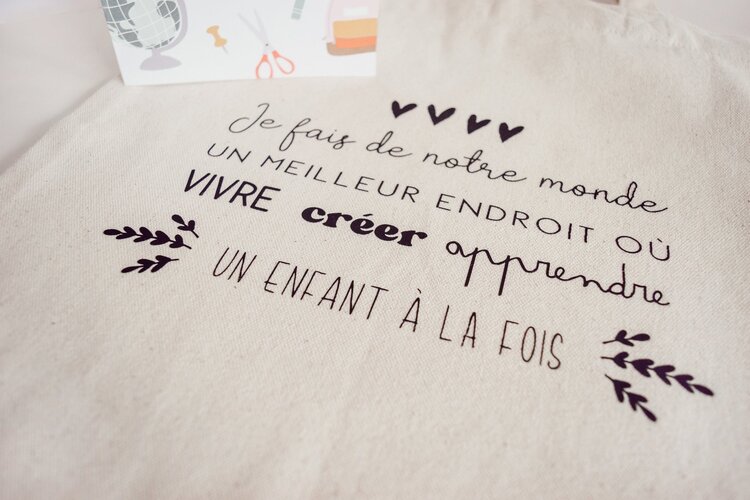 Je fais de notre monde
UN MEILLEUR ENDROIT OÙ
VIVRE créer apprendre
UN ENFANT À LA FOIS